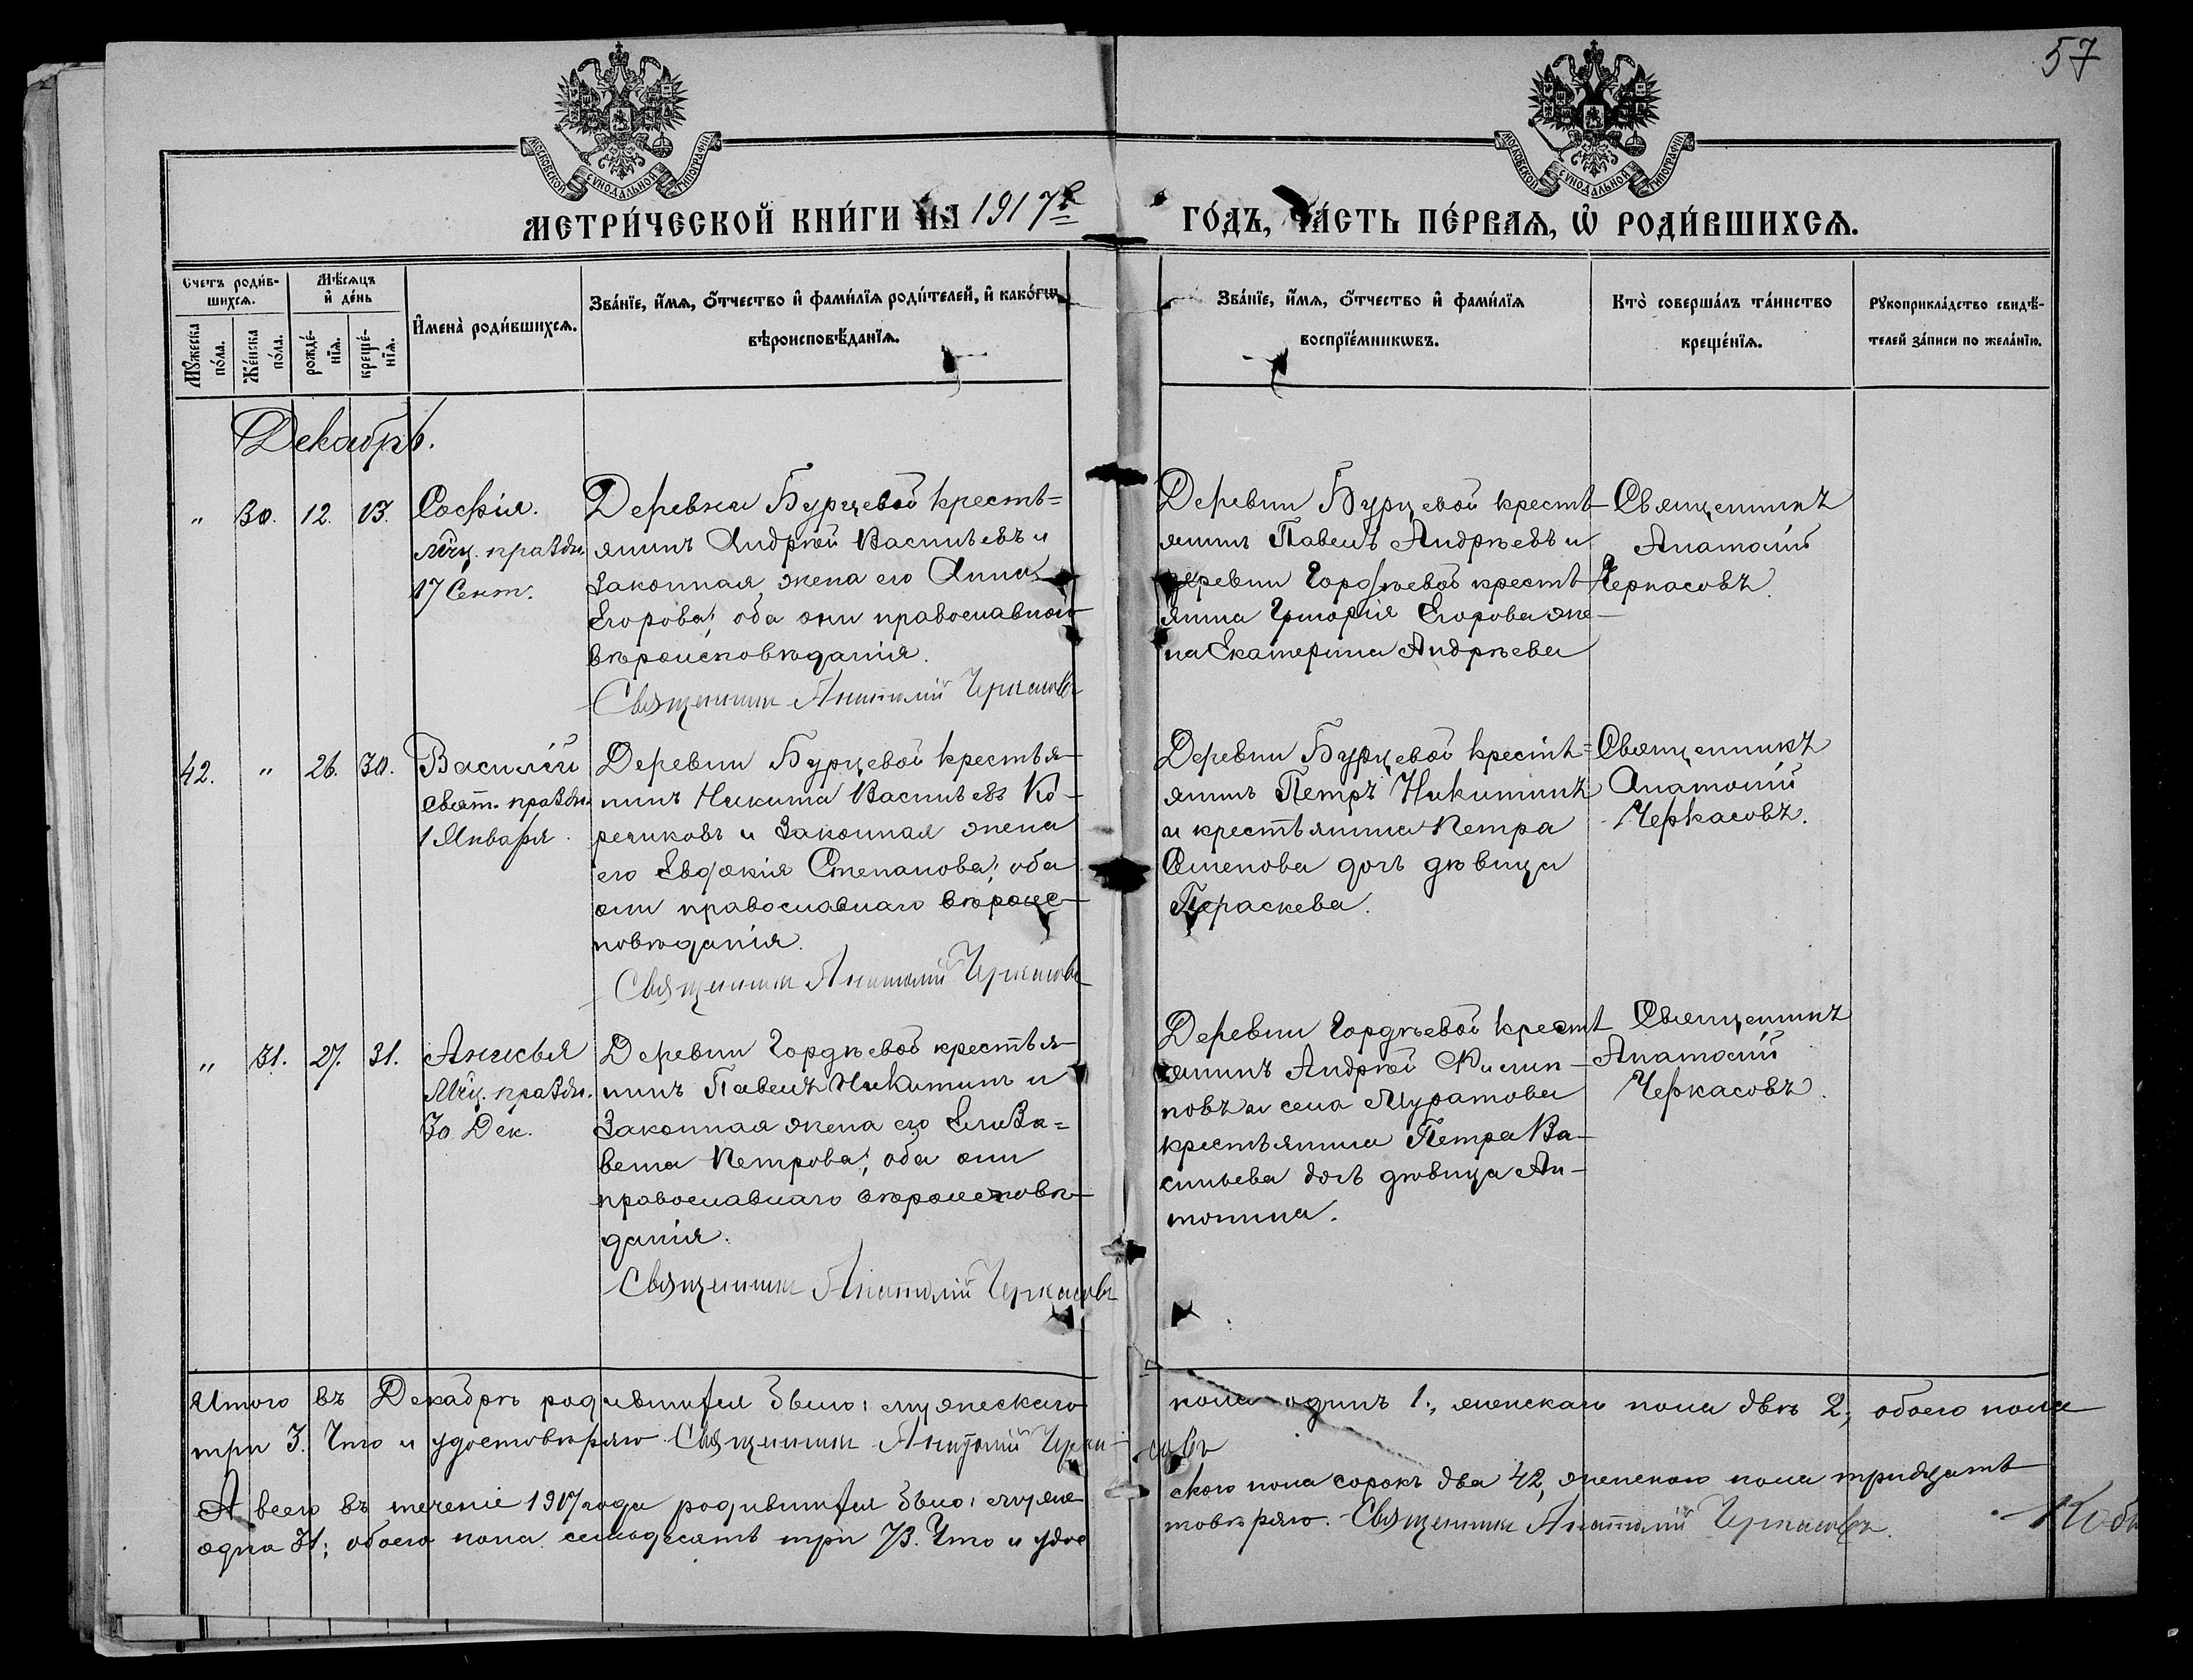 57
МОСКОВСКОЙ СѴНОДАЛЬНОЙ ТИПОГРАФІИ
МОСКОВСКОЙ СѴНОДАЛЬНОЙ ТИПОГРАФІИ
МЕТРИ́ЧЕСКОЙ КНИ́ГИ НА 1917й ГО́ДЪ, ЧА́СТЬ ПЕ́РВАЯ, Ѡ҆ РОДИ́ВШИХСЯ.
Счетъ роди́в-
шихся.
Мѣ́сяцъ
и҆ де́нь
Мꙋ́жеска
по́ла.
Же́нска
по́ла.
рожде́-
нїѧ.
креще́-
нїѧ.
И҆мена̀ роди́вшихсѧ.
Зва́нїе, и҆́мѧ, ѻ҆́тчество и҆ фами́лїѧ роди́телей, и҆ како́гѡ
вѣроисповѣ́данїѧ.
Зва́нїе, и҆́мѧ, ѻ҆́тчество и҆ фами́лїѧ
воспрїе́мникѡвъ.
Кто̀ соверша́лъ та́инство
креще́нїѧ.
Рꙋкоприкла́дство свидѣ́-
телей за́писи по жела́нїю.
Декабрь.
" 30. 12. 13. Софія.
мчц. праздн.
17 Сент.
Деревни Бурцевой кресть=
янинъ Андрей Васильевъ и
законная жена его Анна
Егорова; оба они православного
вѣроисповѣданія.
Священникъ Анатолій Черкасовъ
Деревни Бурцевой кресть-
янинъ Павелъ Андрѣевъ и
деревни Гордѣевой кресть-
янина Григорія Егорова же-
на Екатерина Андрѣева
Священникъ
Анатолій
Черкасовъ.
42. " 26. 30. Василій
Свят. праздн.
1 Января.
Деревни Бурцевой крестья-
нинъ Никита Васильевъ Ко-
речковъ и законная жена
его Евдокія Степанова; оба
они православнаго вѣроис-
повѣданія.
Священникъ Анатолій Черкасовъ
Деревни Бурцевой кресть=
янинъ Петръ Никитинъ
и крестьянина Петра
Семенова дочь дѣвица
Параскева.
Священникъ
Анатолій
Черкасовъ.
" 31. 27. 31. Анисья
Мчц. праздн.
30 Дек.
Деревни Гордѣевой крестья-
нинъ Павелъ Никитинъ и
законная жена его Елиза=
вета Петрова; оба они
православнаго вѣроисповѣ-
данія.
Священникъ Анатолій Черкасовъ
Деревни Гордѣевой кресть-
янинъ Андрей Филип-
повъ и села Муратова
крестьянина Петра Ва-
сильева дочь дѣвица Ан-
тонина.
Священникъ
Анатолій
Черкасовъ.
Итого въ Декабрѣ родившихся было: мужескаго пола одинъ 1., женскаго пола двѣ 2; обоего пола
три 3. Что и удостовѣряю Священникъ Анатолій Черкасовъ
А всего въ теченіе 1917 года родившихся было: муже
ского пола сорокъ два 42, женскаго пола тридцать
одна 31; обоего пола семьдесятъ три 73. Что и удос
товѣряю. Священникъ Анатолій Черкасовъ.